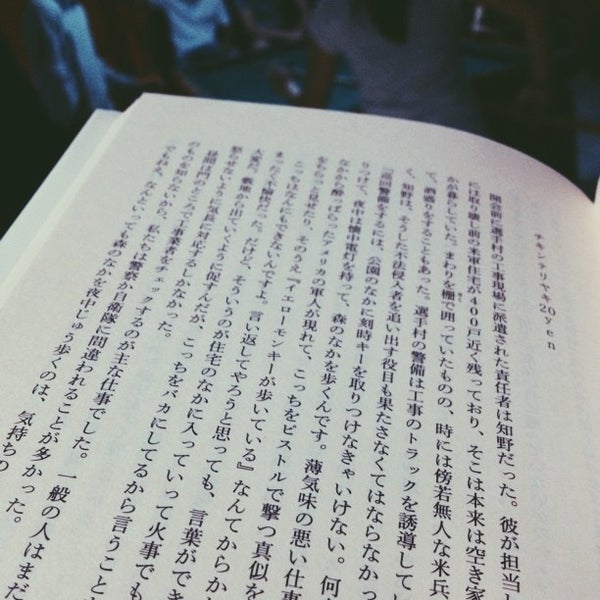 チキンテリヤキ20yen
開会前に選手村の工事現場に派遣された責任者は知野だった。彼が担当
には取り壊し前の米軍住宅が400戸近く残っており、そこは本来は空き家
かが暮らしていた。まわりを柵で囲っていたものの、時には傍若無人な米兵
て、酒盛りをすることもあった。選手村の警備は工事のトラックを誘導して
く、知野は、そうした不法侵入者を追い出す役目も果たさなくてはならなかっ
「巡回警備をするには、公園のなかに刻時キーを取りつけなきゃいけない。何
りつけて、夜中は懐中電灯を持って、森のなかを歩くんです。薄気味の悪い仕事
なかから酔っぱらったアメリカの軍人が現れて、こっちをピストルで撃つ真似を
をちらっと見せたり、そのうえ『イエロー・モンキーが歩いている』なんてからか
こっちはなんにもできないんですよ。言い返してやろうと思っても、言葉ができ
まったく不愉快だった。だけど、そういうのが住宅のなかに入っていって火事でも
大変だ。敷地から出ていくように促すんだが、こっちをバカにしてるから言うこと
怒らせないように気長に対応するしかなかった。
昼間は門のところで工事業者をチェックするのが主な仕事でした。一般の人はまだ
のものを知らないから、私たちは警察か自衛隊に間違われることが多かった。
でもねえ、なんといっても森のなかを夜中じゅう歩くのは、気持ちの